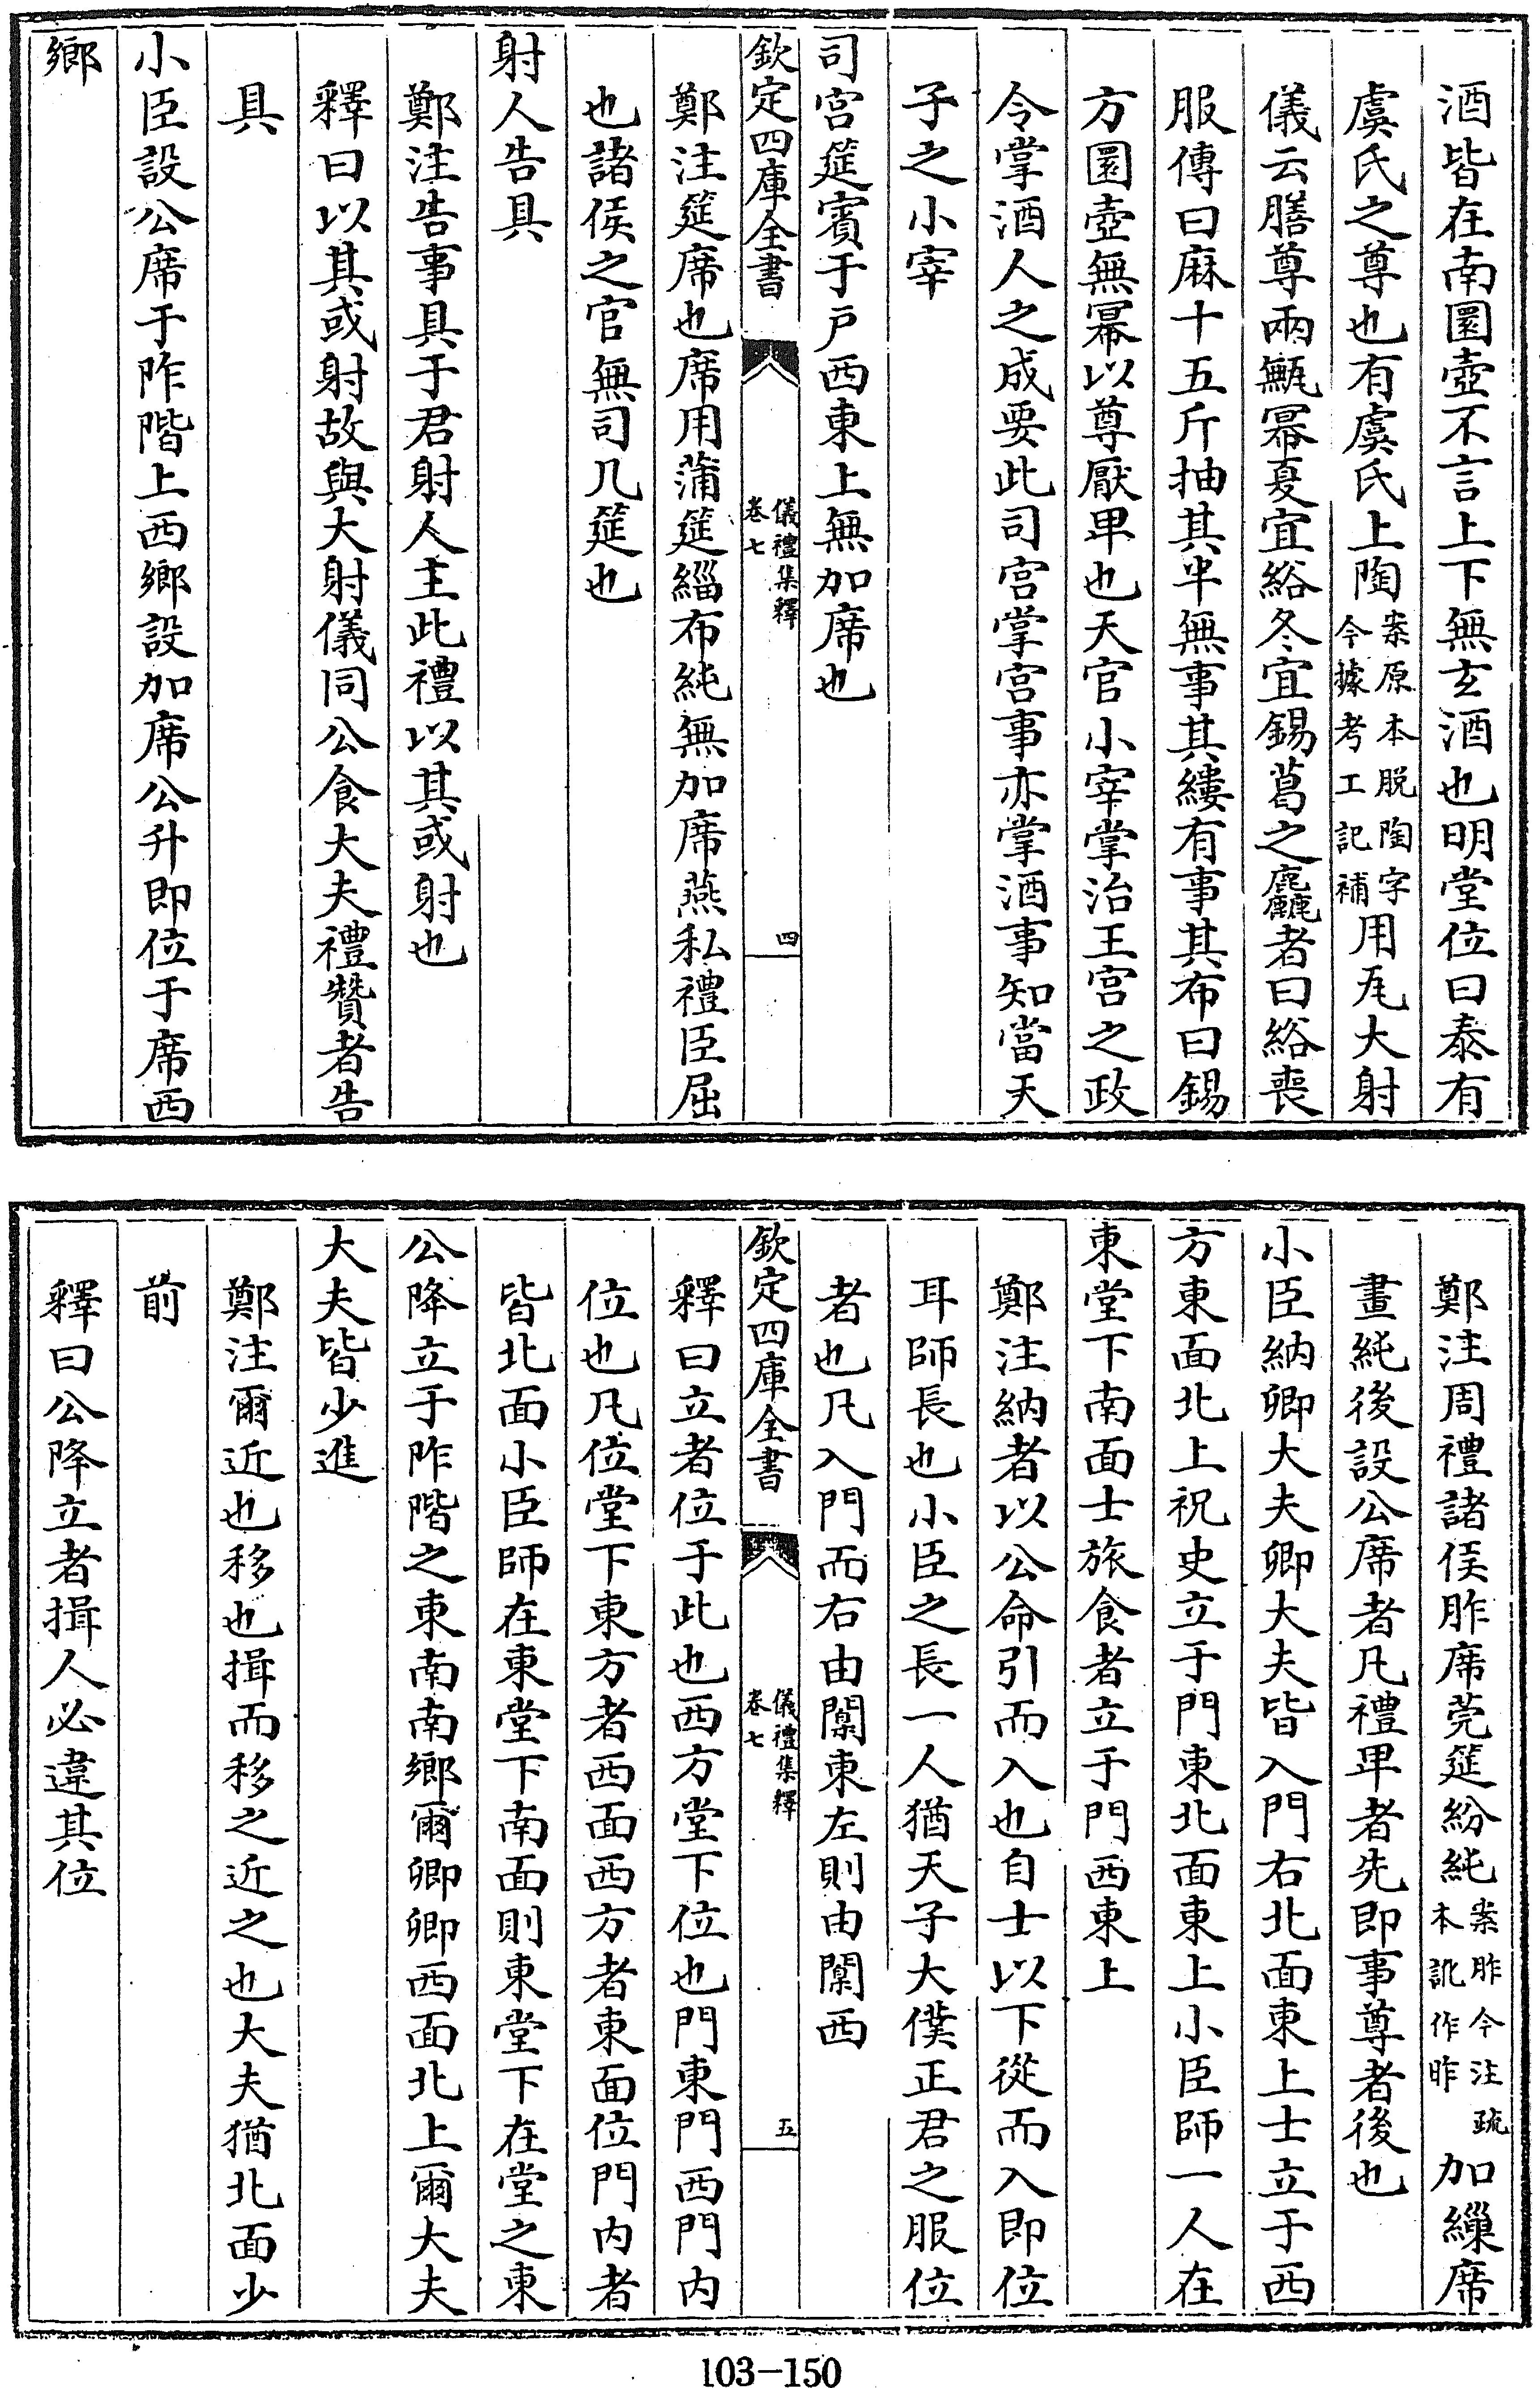 酒皆在南圜壺不言上下無玄酒也明堂位曰泰有
虞氏之尊也有虞氏上陶案原本脫陶字今據考工記補用瓦大射
儀云膳尊兩甒冪夏宜綌冬宜錫葛之麤者曰綌喪
服傳曰麻十五斤抽其半無事其縷有事其布曰錫
方圜壺無冪以尊厭卑也天官小宰掌治王宮之政
令掌酒人之成要此司宮掌宮事亦掌酒事知當天
子之小宰
司宮筵賓于戶西東上無加席也
欽定四庫全書
儀禮集釋
卷七
四
鄭注筵席也席用蒲筵緇布純無加席燕私禮臣屈
也諸侯之官無司几筵也
射人告具
鄭注告事具于君射人主此禮以其或射也
釋曰以其或射故與大射儀同公食大夫禮贊者告
具
小臣設公席于阼階上西鄉設加席公升即位于席西
鄉
鄭注周禮諸侯胙席莞筵紛純案胙今注疏本訛作昨加繅席
畫純後設公席者凡禮卑者先即事尊者後也
小臣納卿大夫卿大夫皆入門右北面東上士立于西
方東面北上祝史立于門東北面東上小臣師一人在
東堂下南面士旅食者立于門西東上
鄭注納者以公命引而入也自士以下從而入即位
耳師長也小臣之長一人猶天子大僕正君之服位
者也凡入門而右由闑東左則由闑西
欽定四庫全書
儀禮集釋
卷七
五
釋曰立者位于此也西方堂下位也門東門西門内
位也凡位堂下東方者西面西方者東面位門内者
皆北面小臣師在東堂下南面則東堂下在堂之東
公降立于阼階之東南南鄉爾卿卿西面北上爾大夫
大夫皆少進
鄭注爾近也移也揖而移之近之也大夫猶北面少
前
釋曰公降立者揖人必違其位
103-150